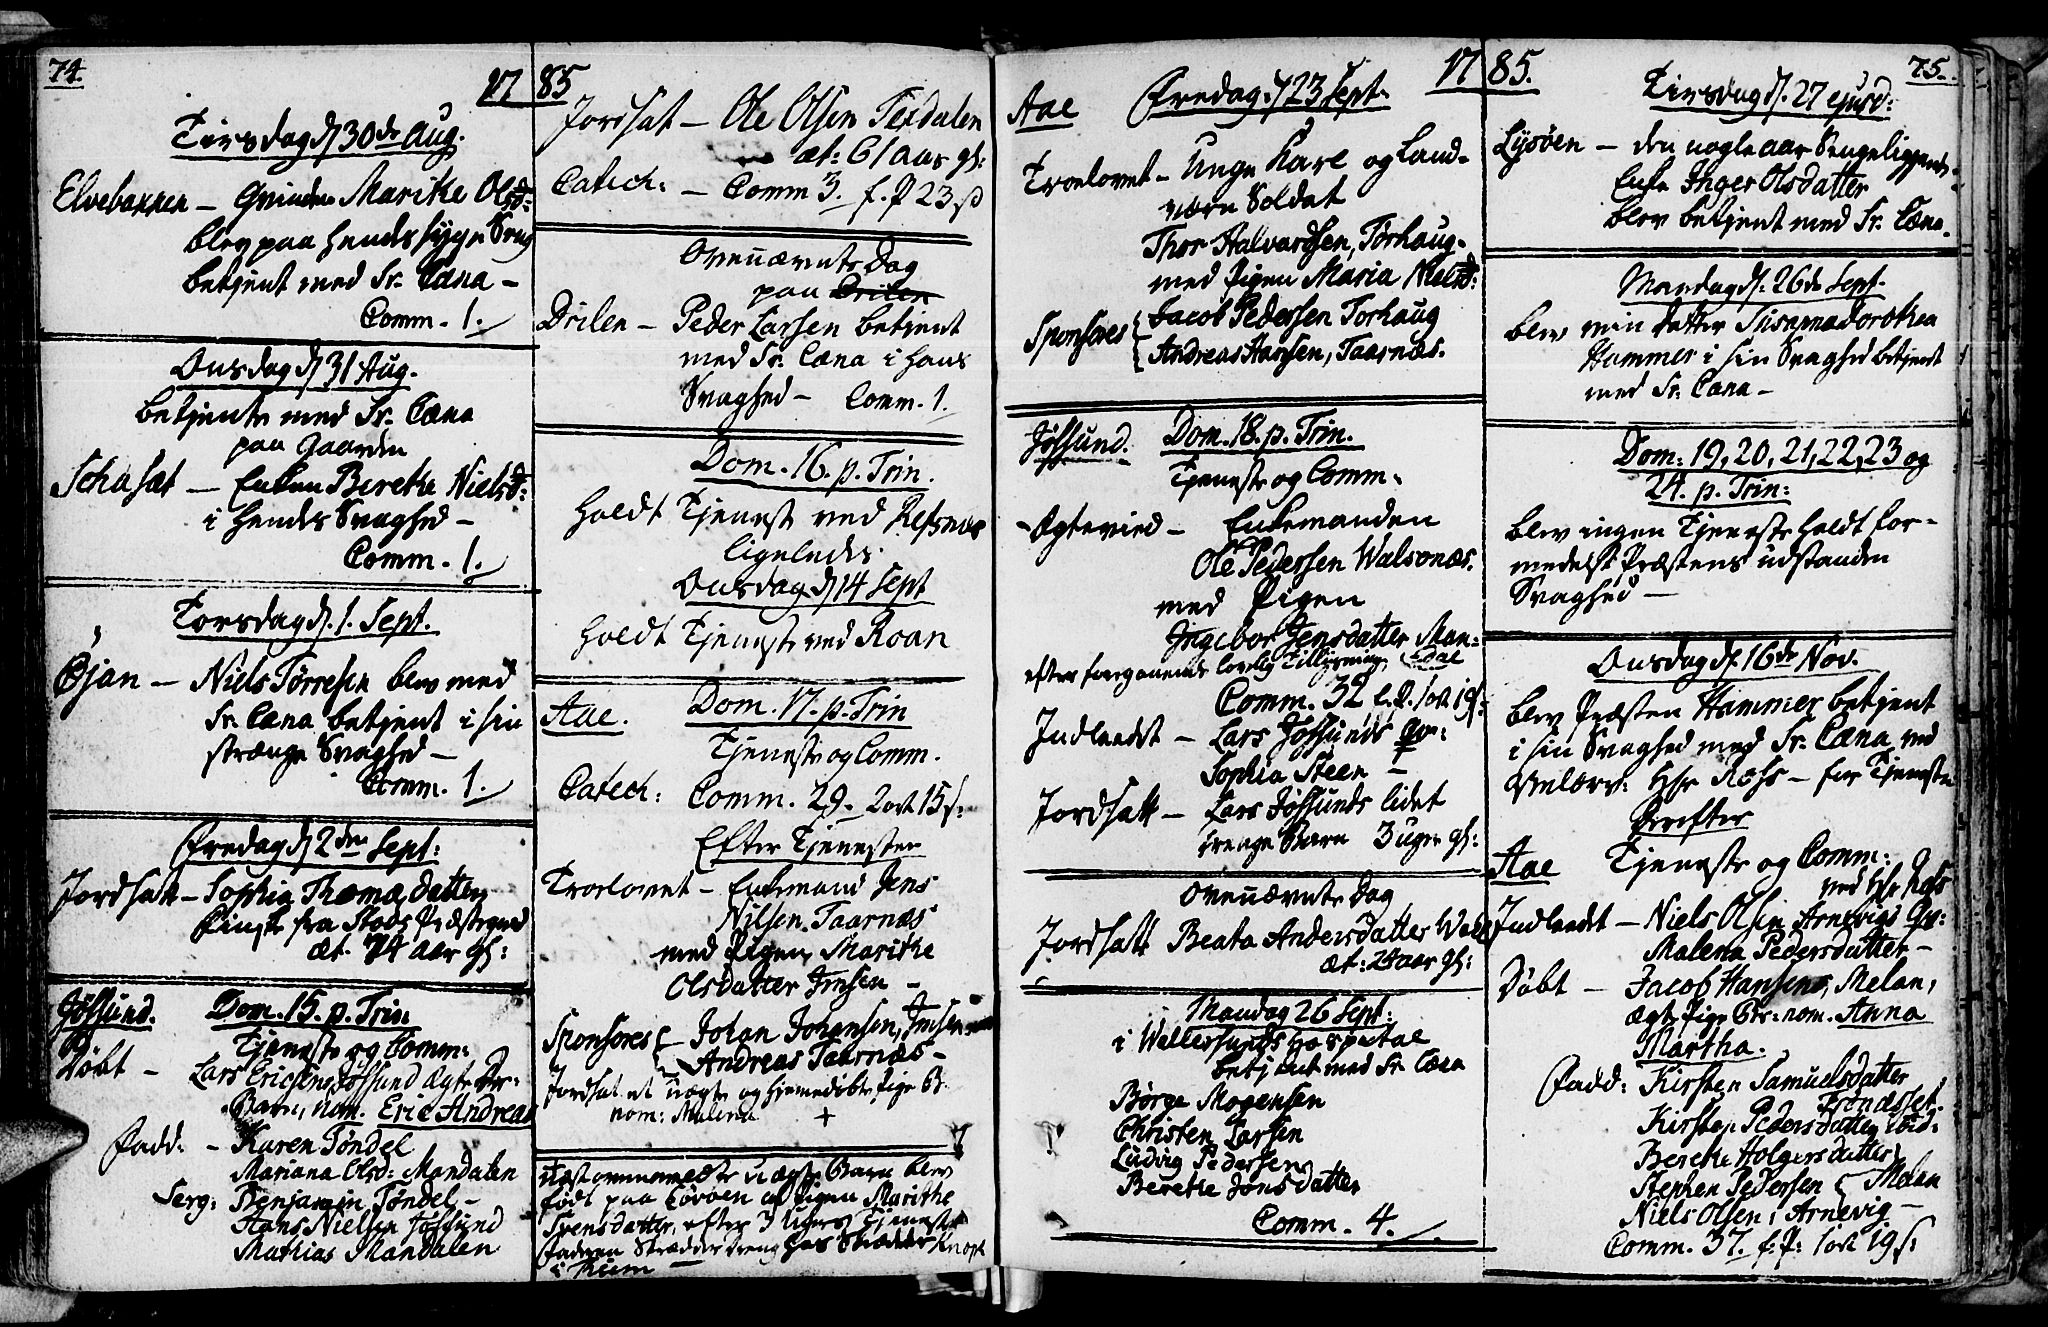 74.
17 85
Tirsdag d 30de Aug.
Elvebakken – Qvinden Marithe Olsd:
blev paa hendes syge Seng
betjent med Sr. Cæna –
Comm. 1.
Onsdag d 31 Aug.
betjente med Sr. Cæna
paa Gaarden
Schasæt – Enken Berethe Nielsd:
i hendes Svaghed –
Comm. 1.
Torsdag d. 1. Sept.
Øjan – Niels Tørresen blev med
Sr. Cæna betjent i sin
strænge Svaghed –
Comm. 1.
Fredag d 2den Sept:
Jordsatt – Sophia Thomædatter
fra Stods Præstegield
æt. 74 aar gl:
Jøssund. Dom. 15. p. Trin:
Tjeneste og Comm:
Døbt – Lars Ericsens Jøssund Ægte
Barn, nom. Eric Andreas
Fadd: – Karen Tøndel
Mariana Olsd: Mandalen
Serg: Benjamin Tøndel –
Hans Nielsen Jøssund
Mathias Mandalen
Jordsat – Ole Olsen Terdalen
æt: 61 aar gl:
Catech: – Comm 3. f. P 23 s
Ovennævnte Dag
paa Drilen
Drilen – Peder Larsen betjent
med Sr. Cæna i hans
Svaghed – Comm. 1.
Dom. 16. p. Trin.
Holdt Tjeneste ved Refsnæs
ligeledes
Onsdag d 14 Sept
holdt Tjeneste ved Roan
Aae. Dom. 17. p. Trin
Tjeneste og Comm.
Catech: Comm. 29. 2 ort 15 s:
Efter Tjenesten
Troelovet – Enkemand Jens
Nilsen Taarnæs
med Pigen Marithe
Olsdatter Imsen –
Sponsores Johan Johansen, Imsen
Andreas Taarnæs –
Jordsat et uægte og hjemedøbte Pige B.
nom: Malena +
Næstommemeldte uægte Barn blev
født paa af Pigen Marithe
Svensdatter, efter 3 Uters Tjeneste
Faderen Skrædder Dreng hos Skrædder Knoph
i Thiem –
17 85.
Aae Fredag d 23 Sept.
Troelovet – Unge Karl og Land-
værn Soldat
Thor Halvardsen, Torhaug.
med Pigen Maria Nielsd:
Sponsores Jacob Pedersen Torhaug
Andreas Hansen, Taarnæs.
Jøssund. Dom. 18. p. Trin.
Tjeneste og Comm:
Ægtevied – Enkemanden
Ole Pedersen Walsonæs.
med Pigen
Ingebor Jensdatter Man-
efter foregaaende lovlig Tillysning dal
Comm. 32 f. P. 1 ort 19 s:
Indleedt – Lars Jøssunds qv:
Sophia Steen –
Jordsatt – Lars Jøssunds lidet
drenge Barn 3 uger gl:
Ovennævnte Dag
Jordsatt Beata Andersdatter
æt: 24 aar gl:
Mandag 26 Sept:
i Wallersunds Hospetal
betjent med Sr. Cæna
Børge Mogensen
Christen Larsen
Ludvig Pedersen
Berethe Jonsdatter
Comm. 4.
75.
Tirsdag d. 27 ejusd:
Lysøen – den nogle aar Sengeliggende
Enke Inger Olsdatter
blev betjent med Sr. Cæna.
Mandag d. 26de Sept.
blev min datter Susanna dorothea
Hammer i sin Svaghed betjent
med Sr. Cæna –
Dom: 19, 20, 21, 22, 23 og
24. p. Trin:
blev ingen Tjeneste holdt for-
medelst Præstens udstanden
Svaghed –
Onsdag d. 16de Nov.
blev Præsten Hammer betjent
i sin Svaghed med Sr. Cæna ved
Velærv: Hr Rohs – før Tjenesten
Derefter
Aae Tjeneste og Comm:
ved Hr Rohs
Indleedt – Niels Olsen Arnevigs Qv:
Malena Pedersdatter –
Døbt – Jacob Hansens, Melan,
Ægte Pige B: nom. Anna
Martha.
Fadd: Kirsten Samuelsdatter
Trondsset
Kirsten Pedersdatter ibid:
Berethe Holgersdatter
Stephen Pedersen Melan
Niels Olsen, Arnevig –
Comm. 37. f. P: 1 ort 19 s: